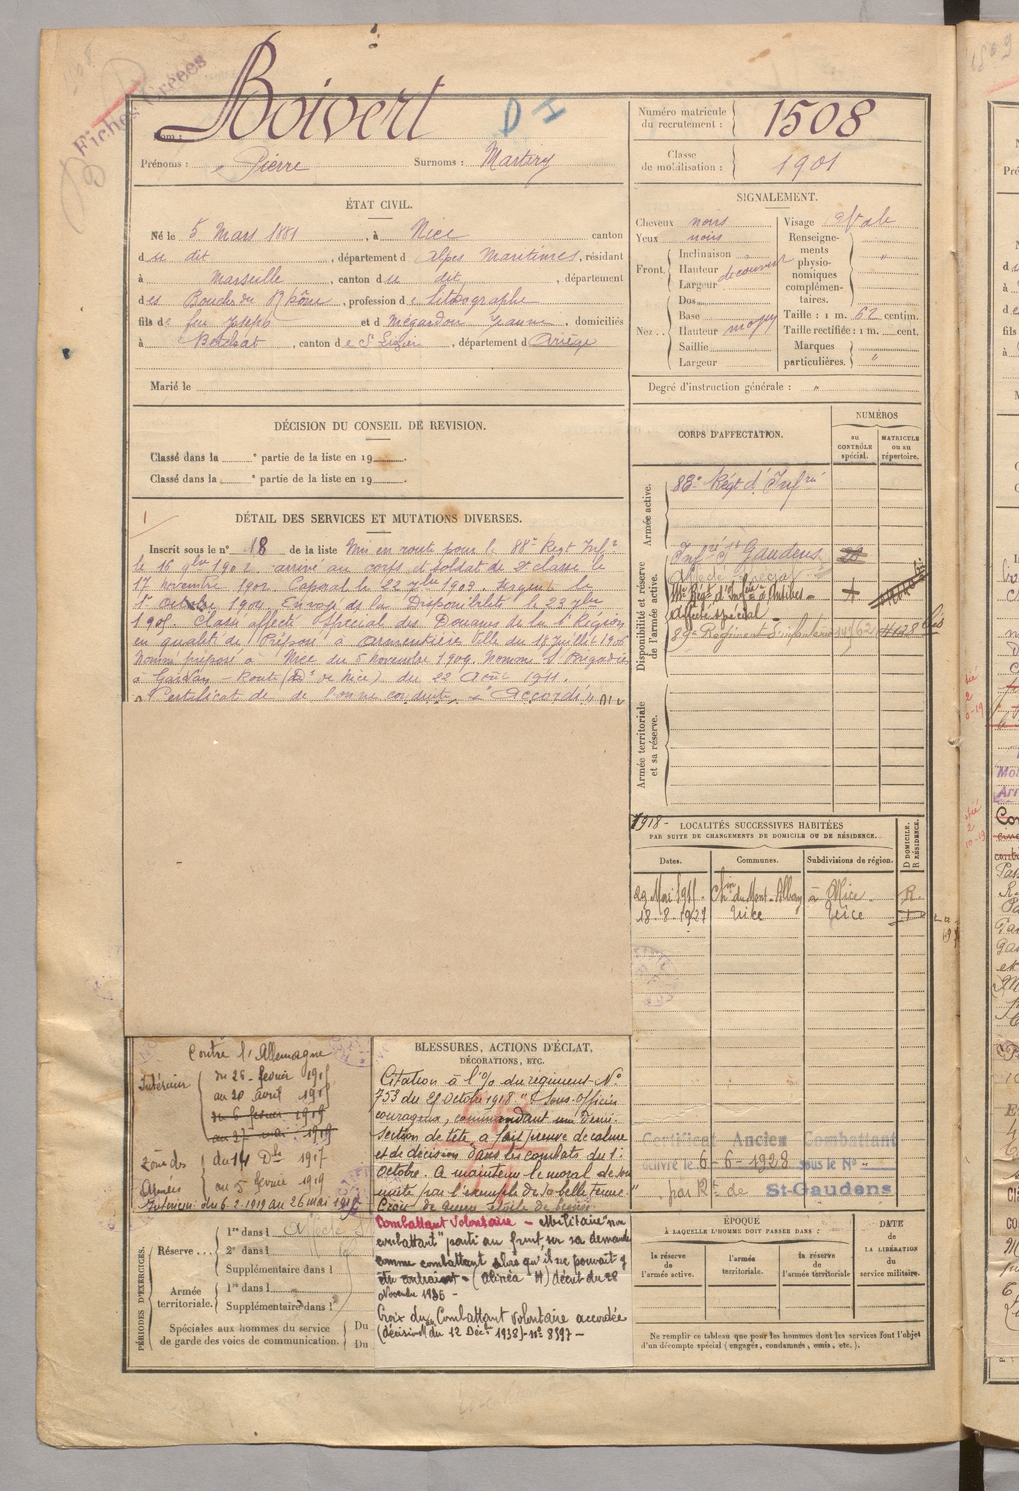 Fiches Créées
Boivert
D I
Nom :
Prénoms : Pierre Surnoms : Martiry
Numéro matricule
du recrutement : 1508
Classe
de mobilisation : 1901
ÉTAT CIVIL.
Né le 5 Mars 1881, à Nice canton
du dit, département d Alpes Maritimes, résidant
à Marseille, canton du dit, département
des Bouches du Rhône, profession de lithographe
fils de feu Joseph et d Mégardon Jeanne, domiciliés
à Betchat, canton de St Lizier, département d Ariège
Marié le
SIGNALEMENT.
Cheveux noirs Visage ovale
Yeux noirs
Front. Inclinaison
Hauteur découvert
Largeur
Nez. Dos
Base
Hauteur moyen
Saillie
Largeur
Renseigne-
ments
physio-
nomiques
complémen-
taires.
Taille : 1 m. 62 centim.
Taille rectifiée : 1 m. cent.
Marques
particulières.
Degré d'instruction générale : "
DÉCISION DU CONSEIL DE REVISION.
Classé dans la ᵉ partie de la liste en 19
Classé dans la ᵉ partie de la liste en 19
DÉTAIL DES SERVICES ET MUTATIONS DIVERSES.
Inscrit sous le n° 18 de la liste Mis en route pour le 88e Régt Infie
le 16 9bre 1902. arrivé au corps et soldat de 2e classe le
17 novembre 1902. Caporal le 22 7bre 1903. Sergent le
1er octobre 1904. Envoyé de la Disponibilité le 23 7bre
1905. Classé affecté Spécial des Douanes de la 1e Région
en qualité de Préposé à Armentières Ville du 18 Juillet 1906
nommé préposé à Nice du 5 novembre 1909. Nommé S/ Brigadier
à Route (Don de Nice) du 22 Août 1911.
Certificat de bonne conduite "Accordé"
CORPS D'AFFECTATION.
NUMÉROS
au
CONTRÔLE
spécial.
MATRICULE
ou au
répertoire.
Armée active.
83e Régt d'Infie
Disponibilité et réserve
de l'armée active.
Infie St Gaudens
Affecté spécial
Régt d'Infie à Antibes
Affecté spécial
89e Régiment d'infanterie
Armée territoriale
et sa réserve.
1918 -
LOCALITÉS SUCCESSIVES HABITÉES
PAR SUITE DE CHANGEMENTS DE DOMICILE OU DE RÉSIDENCE.
Dates. Communes. Subdivisions de région. D DOMICILE. R RÉSIDENCE.
29 Mai 1911 Chin du Mont-Alban à Nice. R.
18-8-1927 Nice Nice
Contre l'Allemagne
Intérieur du 26 février 1915
au 20 avril 1915
du 6 février 1919
au 27 mai 1919
Zône des
Armées du 14 Dbre 1917
au 5 février 1919
Intérieur du 6-2-1919 au 26 mai 1919
BLESSURES, ACTIONS D'ÉCLAT,
DÉCORATIONS, ETC.
Citation à l'% du régiment N°
753 du 21 octobre 1918 "Sous-Officier
courageux, commandant une Demi-
section de tête, a fait preuve de calme
et de décision dans les combats du 1er
Octobre. A maintenu le moral de son
unité par l'exemple de sa belle tenue."
Croix de guerre étoile de bronze.
Combattant Volontaire - Militaire "non
combattant" parti au front, sur sa demande
comme combattant alors qu'il ne pouvait y
être contraint - (Alinéa H) décret du 28
Novembre 1936 -
Croix du Combattant Volontaire accordée
(décision du 12 Déc. 1938) - n° 8397 -
Certificat Ancien Combattant
délivré le 6-6-1928 sous le N°
par Rt de St-Gaudens
PÉRIODES D'EXERCICES.
Réserve... 1re dans l
2e dans l
Supplémentaire dans l
Armée
territoriale. 1re dans l
Supplémentaire dans l
Spéciales aux hommes du service
de garde des voies de communication. Du
Du
ÉPOQUE
À LAQUELLE L'HOMME DOIT PASSER DANS :
la réserve
de
l'armée active.
l'armée
territoriale.
la réserve
de
l'armée territoriale
DATE
de
LA LIBÉRATION
du
service militaire.
Ne remplir ce tableau que pour les hommes dont les services font l'objet
d'un décompte spécial (engagés, condamnés, omis, etc.).